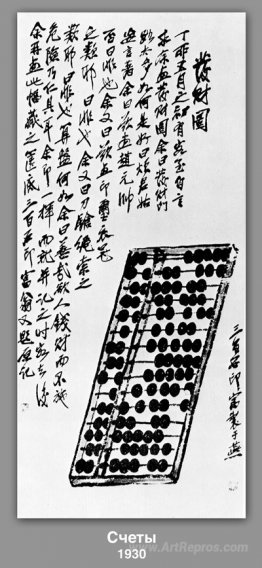 發財圖
丁卯五月之初有客至自言
求余畫發財圖余曰發財門
路太多如何是好曰煩君姑
妄言著余曰欲畫趙元帥
否曰非也余又曰欲畫印璽衣冠
之類耶曰非也余又曰刀鎗繩索之
類耶曰非也算盤何如余曰善哉欲人錢財而不施
危險乃仁具耳余即一揮而就并記之時客去後
余再畫此幅藏之篋底三百石印富翁又題原記
三百石印富翁製于燕
Счеты
1930
www.ArtRepros.com